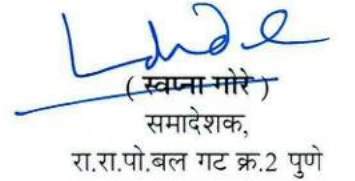 ( स्वप्ना गोरे )
समादेशक,
रा.रा.पो.बल गट क्र.2 पुणे